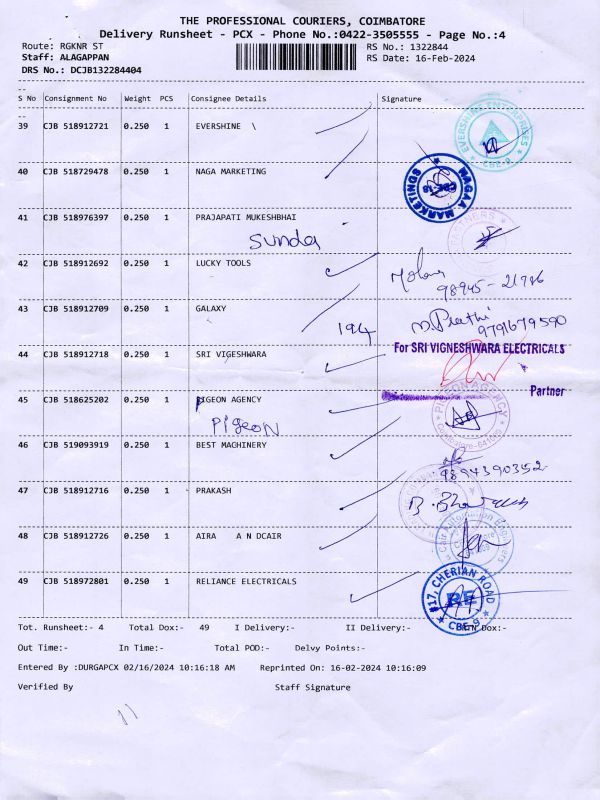 THE PROFESSIONAL COURIERS, COIMBATORE
Delivery Runsheet - PCX - Phone No.:0422-3505555 - Page No.:4
Route: RGKNR ST RS No.: 1322844
Staff: ALAGAPPAN RS Date: 16-Feb-2024
DRS No.: DCJB132284404
S No Consignment No Weight PCS Consignee Details Signature
39 CJB 518912721 0.250 1 EVERSHINE
EVERSHINE ENTERPRISES CBE-9
40 CJB 518729478 0.250 1 NAGA MARKETING
NAGAA MARKETINGS CBE-18
41 CJB 518976397 0.250 1 PRAJAPATI MUKESHBHAI
Sunda
42 CJB 518912692 0.250 1 LUCKY TOOLS
98945-21786
43 CJB 518912709 0.250 1 GALAXY
194 9791679590
44 CJB 518912718 0.250 1 SRI VIGESHWARA
For SRI VIGNESHWARA ELECTRICALS
Partner
45 CJB 518625202 0.250 1 PIGEON AGENCY
PIGEON
46 CJB 519093919 0.250 1 BEST MACHINERY
9894390352
47 CJB 518912716 0.250 1 PRAKASH
48 CJB 518912726 0.250 1 AIRA A N DCAIR
49 CJB 518972801 0.250 1 RELIANCE ELECTRICALS
#17, CHERIAN ROAD RE CBE-9
Tot. Runsheet:- 4 Total Dox:- 49 I Delivery:- II Delivery:- Dox:-
Out Time:- In Time:- Total POD:- Delvy Points:-
Entered By :DURGAPCX 02/16/2024 10:16:18 AM Reprinted On: 16-02-2024 10:16:09
Verified By Staff Signature